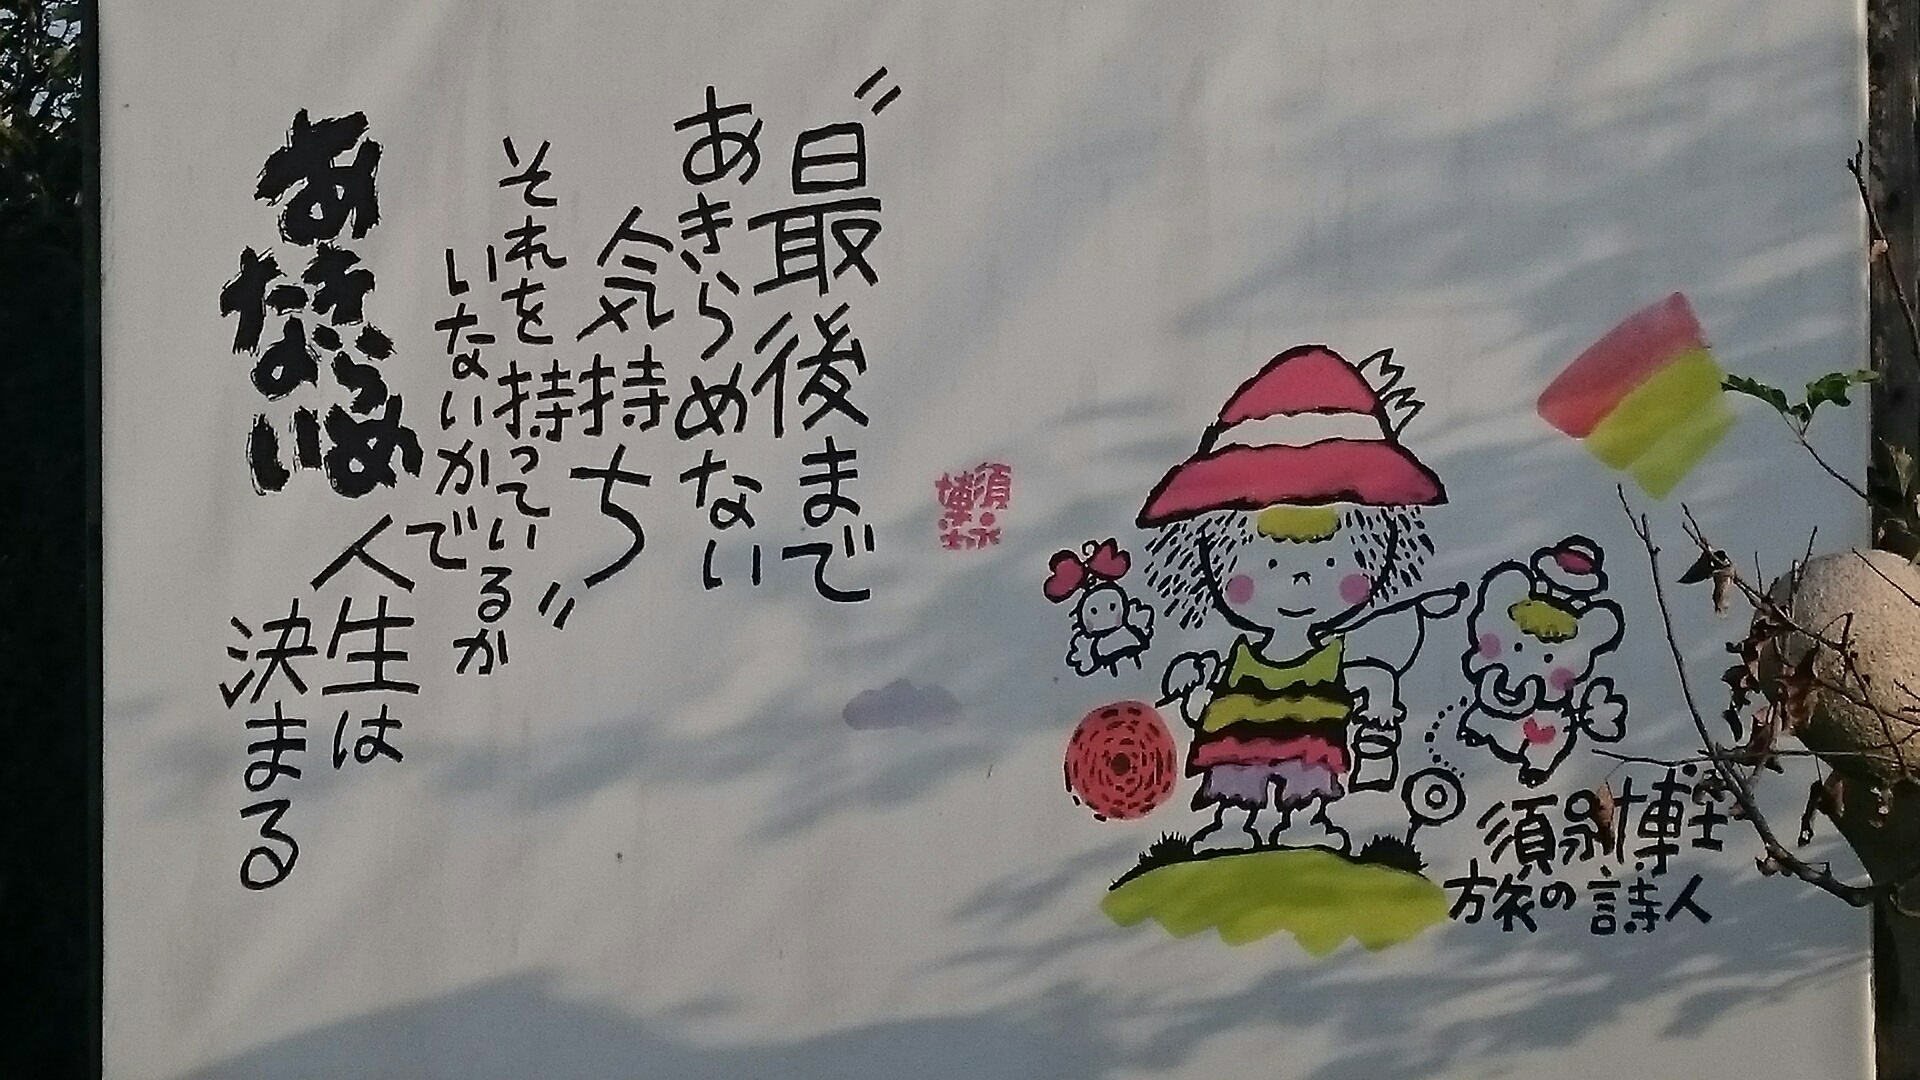 〃最後まで
あきらめない
気持ち〃
それを持っているか
いないかで
人生は
決まる
あきらめ
ない
須永博士
旅の詩人